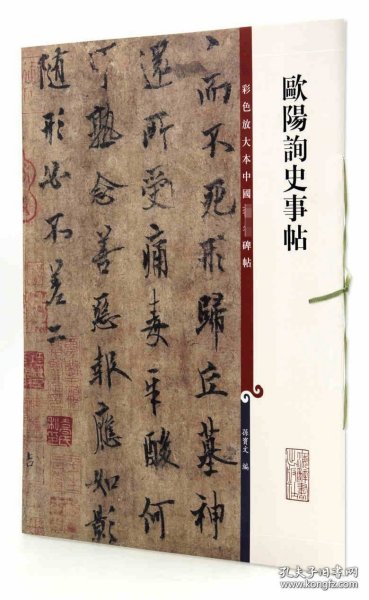 歐陽詢史事帖
彩色放大本中國
碑帖
孫寶文 編
而不死形歸丘墓神
還所受痛毒辛酸何
可熟念善惡報應如影
隨形必不差二
孔夫子旧书网